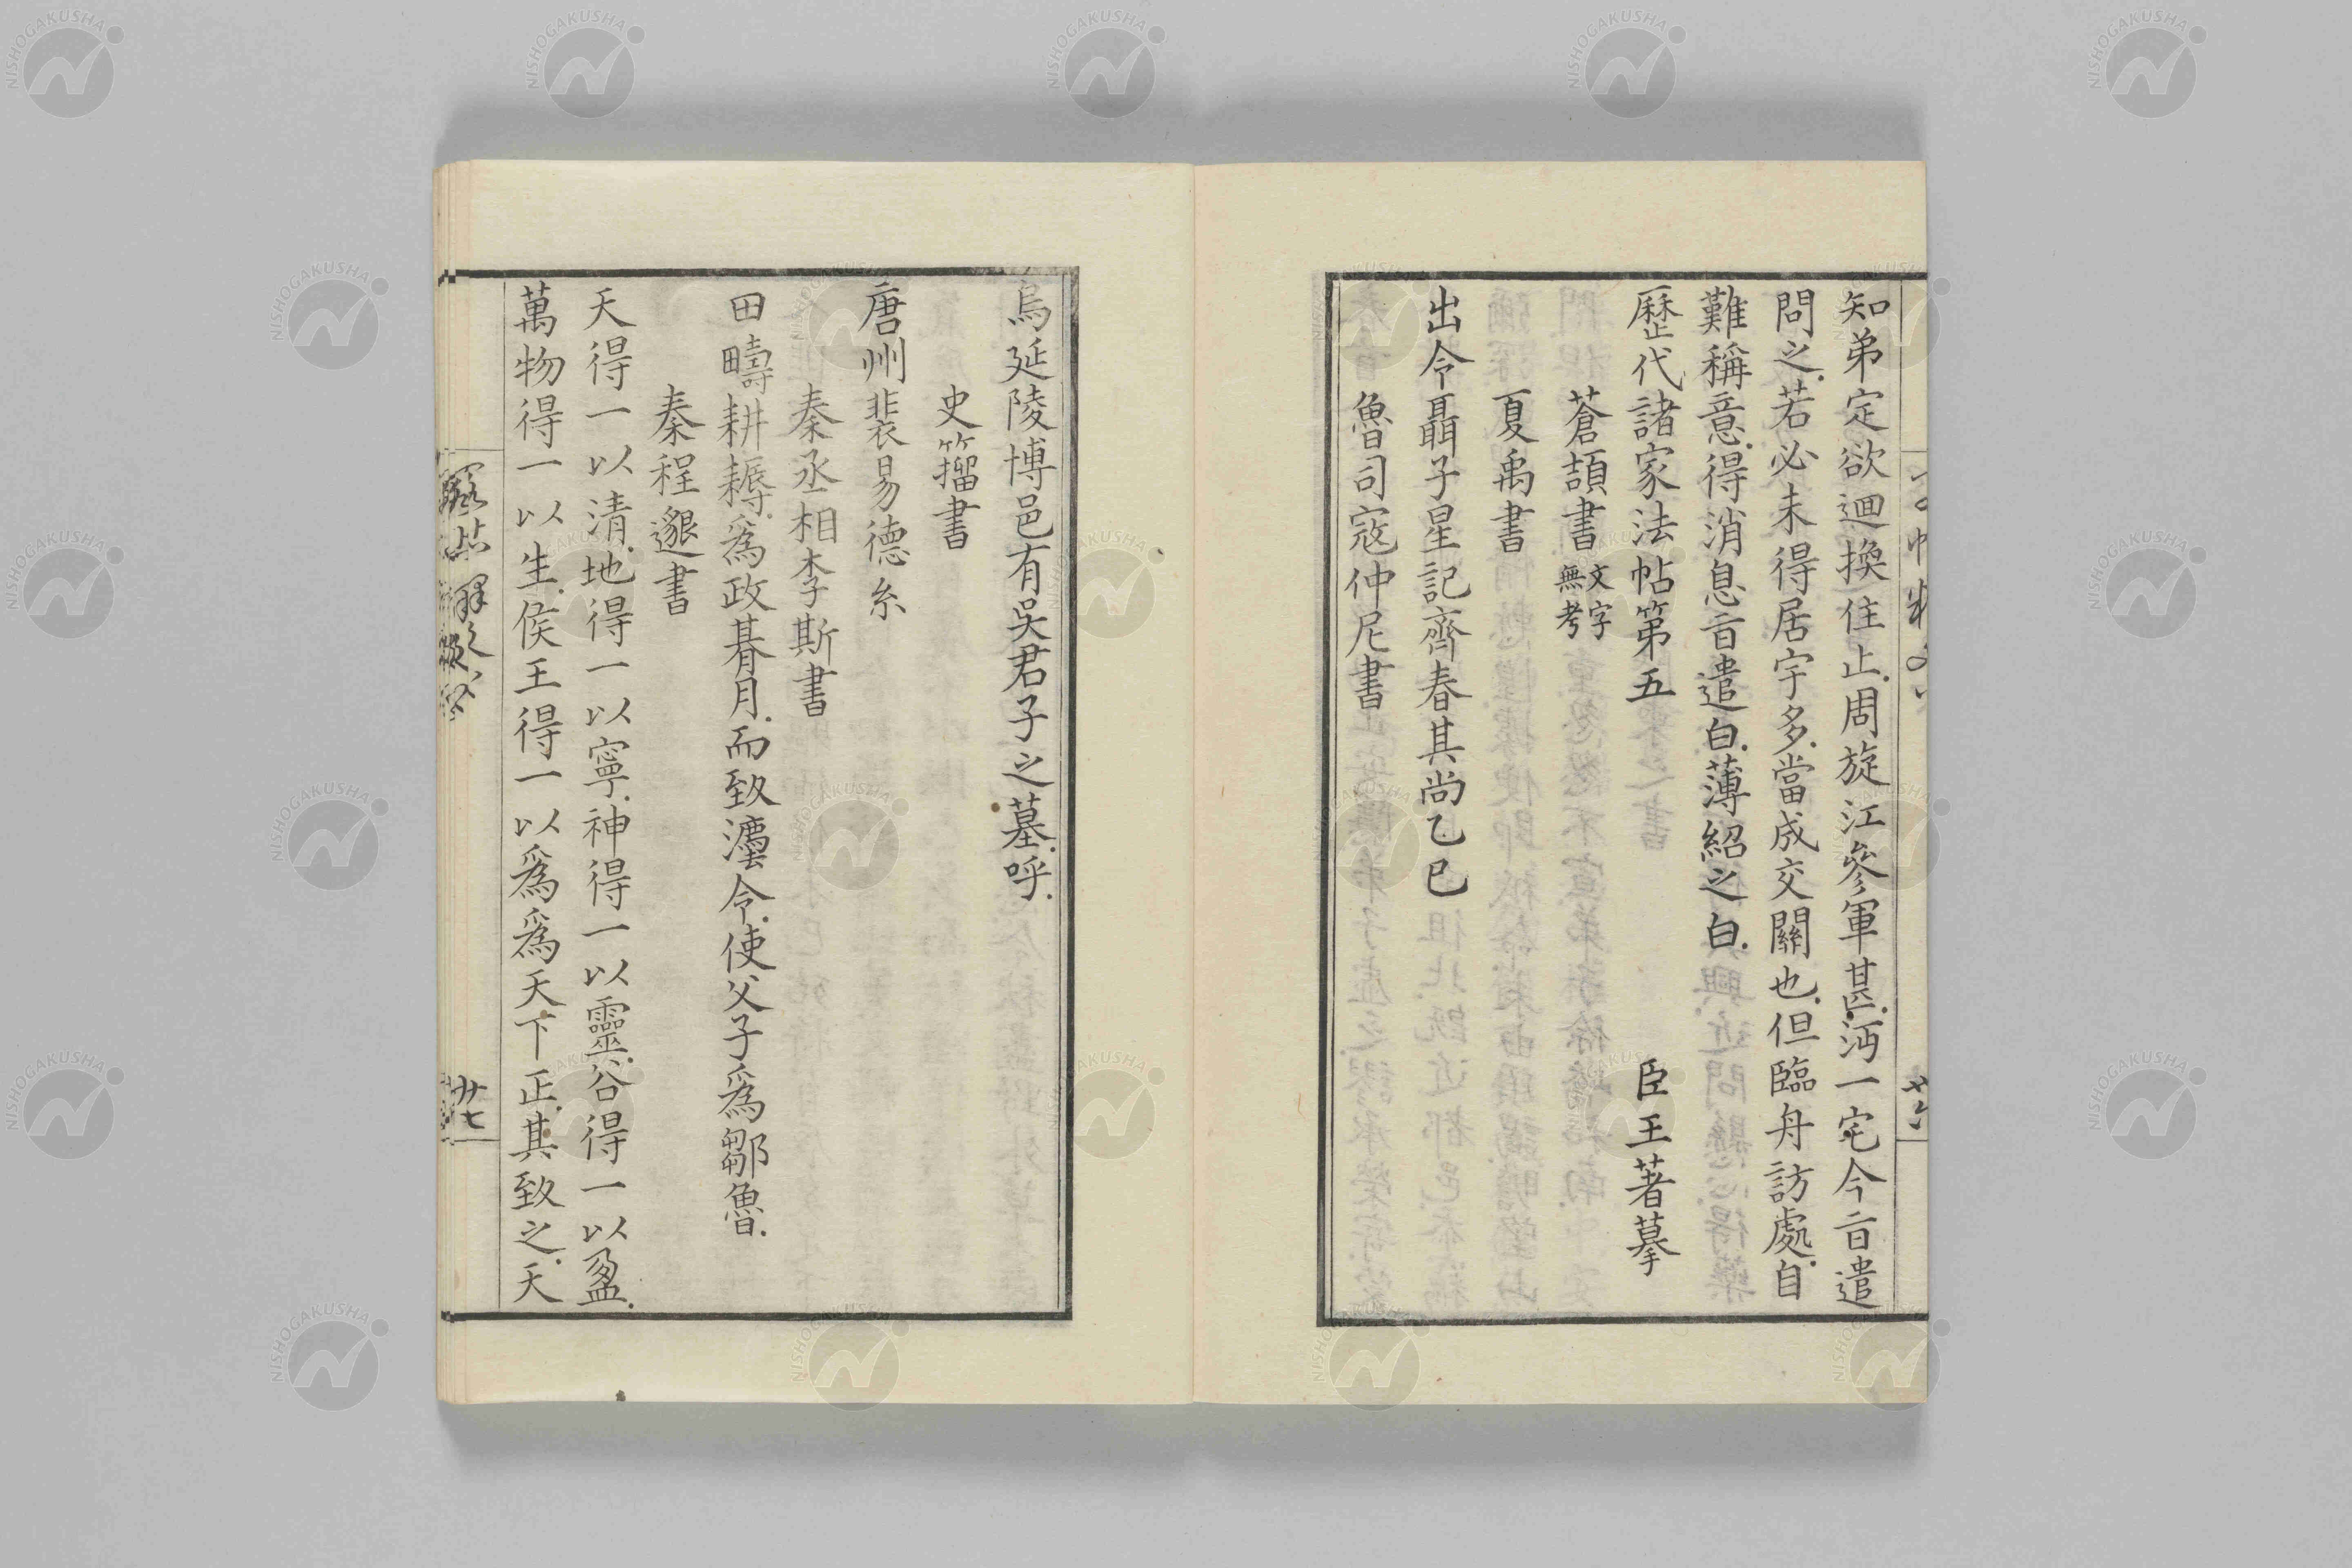 知弟定欲迴換住止.周旋江參軍甚.沔一宅今㫖遣
問之.若必未得居宇多.當成交關也.但臨舟訪處.自
難稱意.得消息㫖遣白.薄紹之白.
歷代諸家法帖第五 臣王著摹
蒼頡書 文字無考
夏禹書
出令聶子星記齊春其尚乙巳
魯司寇仲尼書
烏延陵博邑有吳君子之墓.呼.
史籀書
唐州裴易德糸
秦丞相李斯書
田疇耕耨.爲政朞月.而致灋令.使父子爲鄒魯.
秦程邈書
天得一以清.地得一以寧.神得一以靈.谷得一以盈.
萬物得一以生.侯王得一以爲爲天下正.其致之.天
廿七
NISHOGAKUSHA